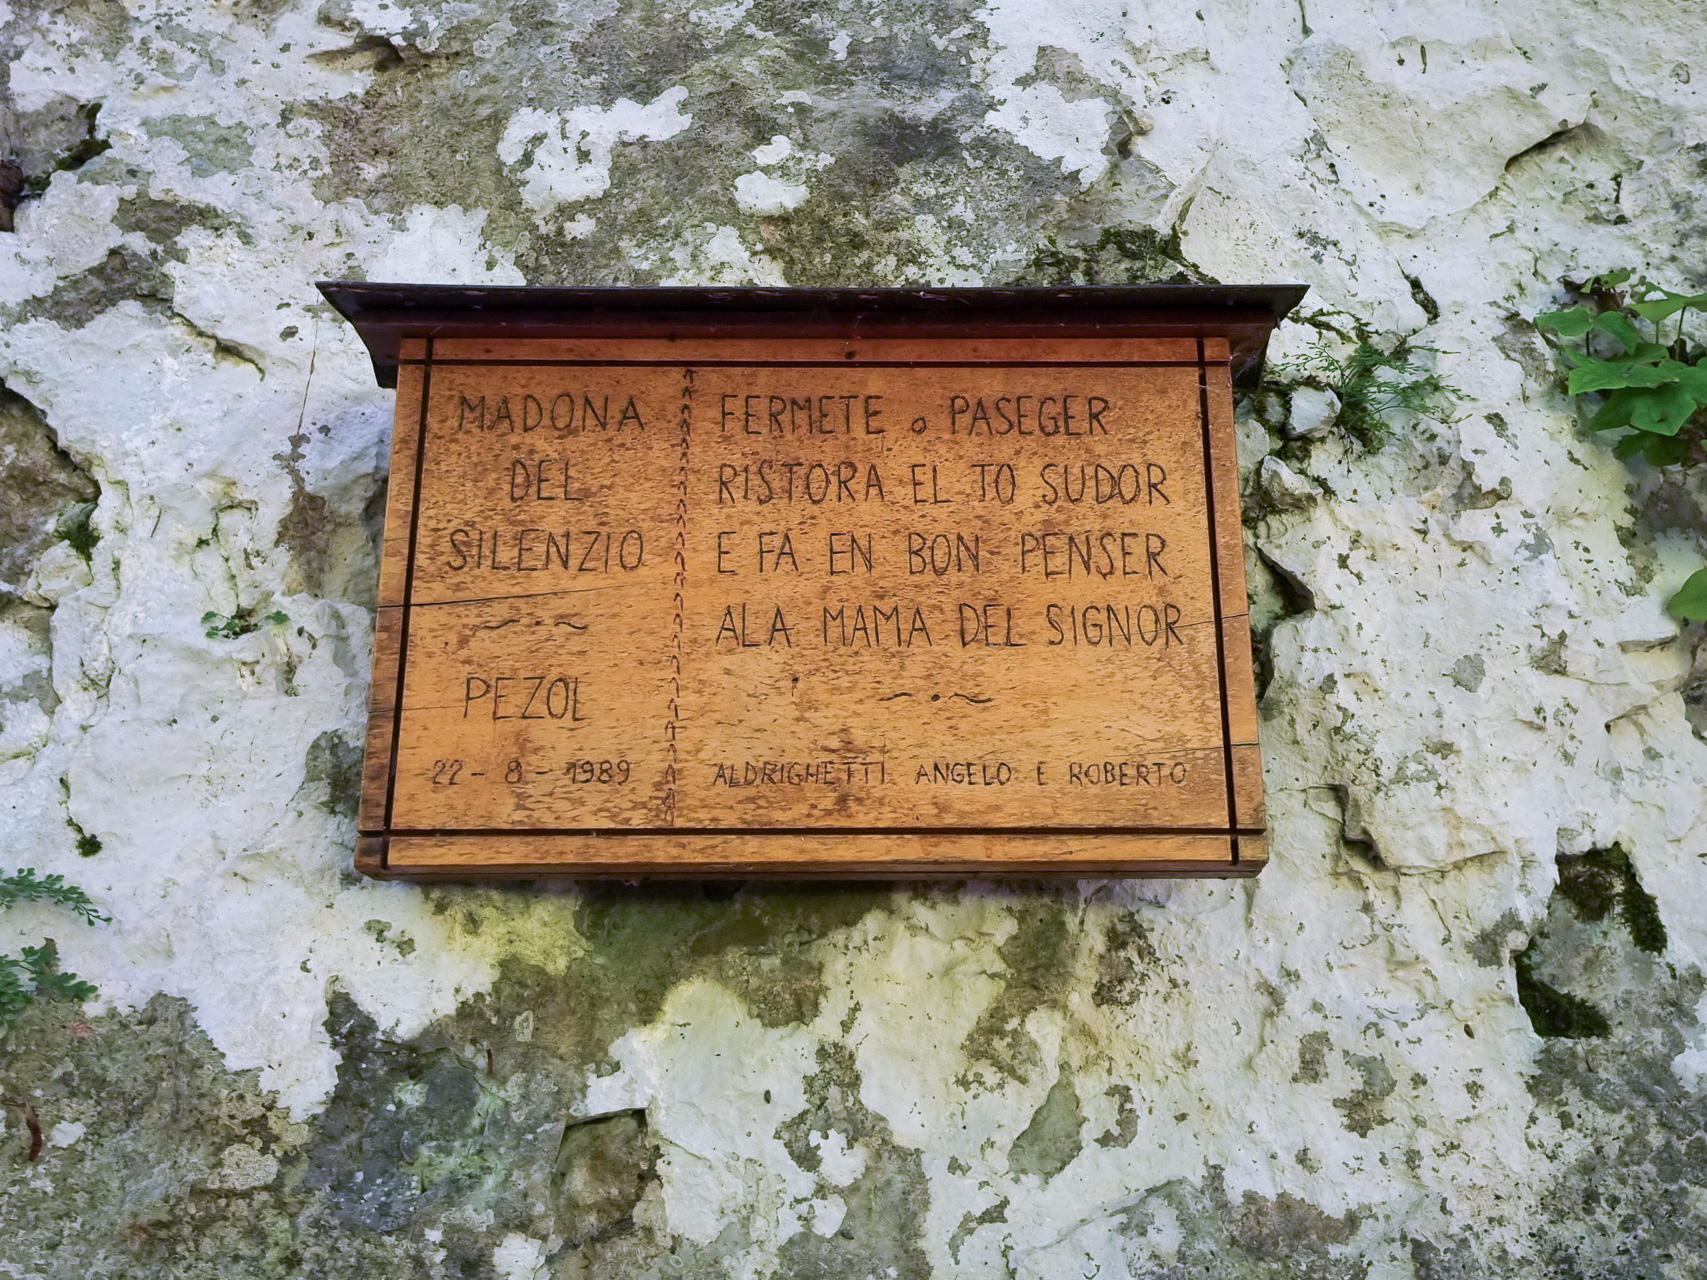 MADONA
DEL
SILENZIO
PEZOL
22 - 8 - 1989
FERMETE o PASEGER
RISTORA EL TO SUDOR
E FA EN BON PENSER
ALA MAMA DEL SIGNOR
ALDRIGHETTI ANGELO E ROBERTO